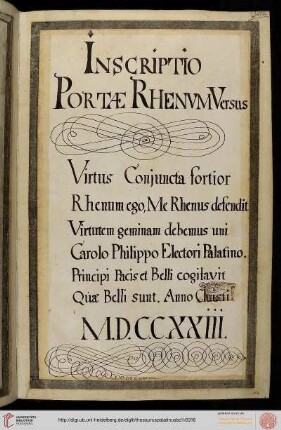 INSCRIPTIO
PORTÆ RHENVM Versus
Virtus Conjuncta fortior
Rhenum ego, Me Rhenus defendit
Virtutem geminam debemus uni
Carolo Philippo Electori Palatino.
Principi Pacis et Belli cogitavit
Quæ Belli sunt. Anno Christi
M.D.CCXXIII.
http://digi.ub.uni-heidelberg.de/diglit/
UNIVERSITÄTS-
BIBLIOTHEK
HEIDELBERG